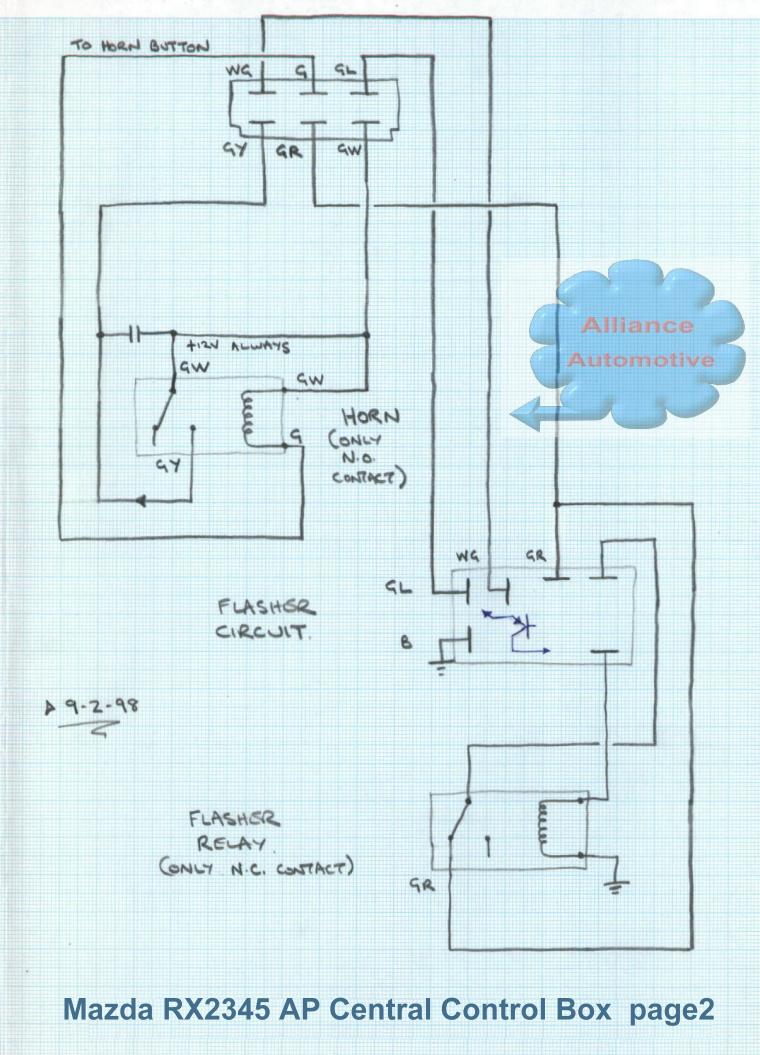 TO HORN BUTTON
WG G GL
GY GR GW
+12V ALWAYS
GW
GW
G
GY
HORN
(ONLY
N.O.
CONTACT)
Alliance
Automotive
WG GR
GL
B
FLASHER
CIRCUIT.
9-2-98
FLASHER
RELAY.
(ONLY N.C. CONTACT)
GR
Mazda RX2345 AP Central Control Box page2